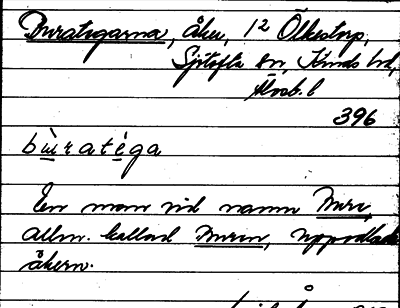 Burategarna, åker, 12 Ölkestorp,
Sjötofta sn, Kinds hd,
Älvsb. l
396
bùratéga
En man vid namn Bure,
allm. kallad Buren, uppodlade
åkern.